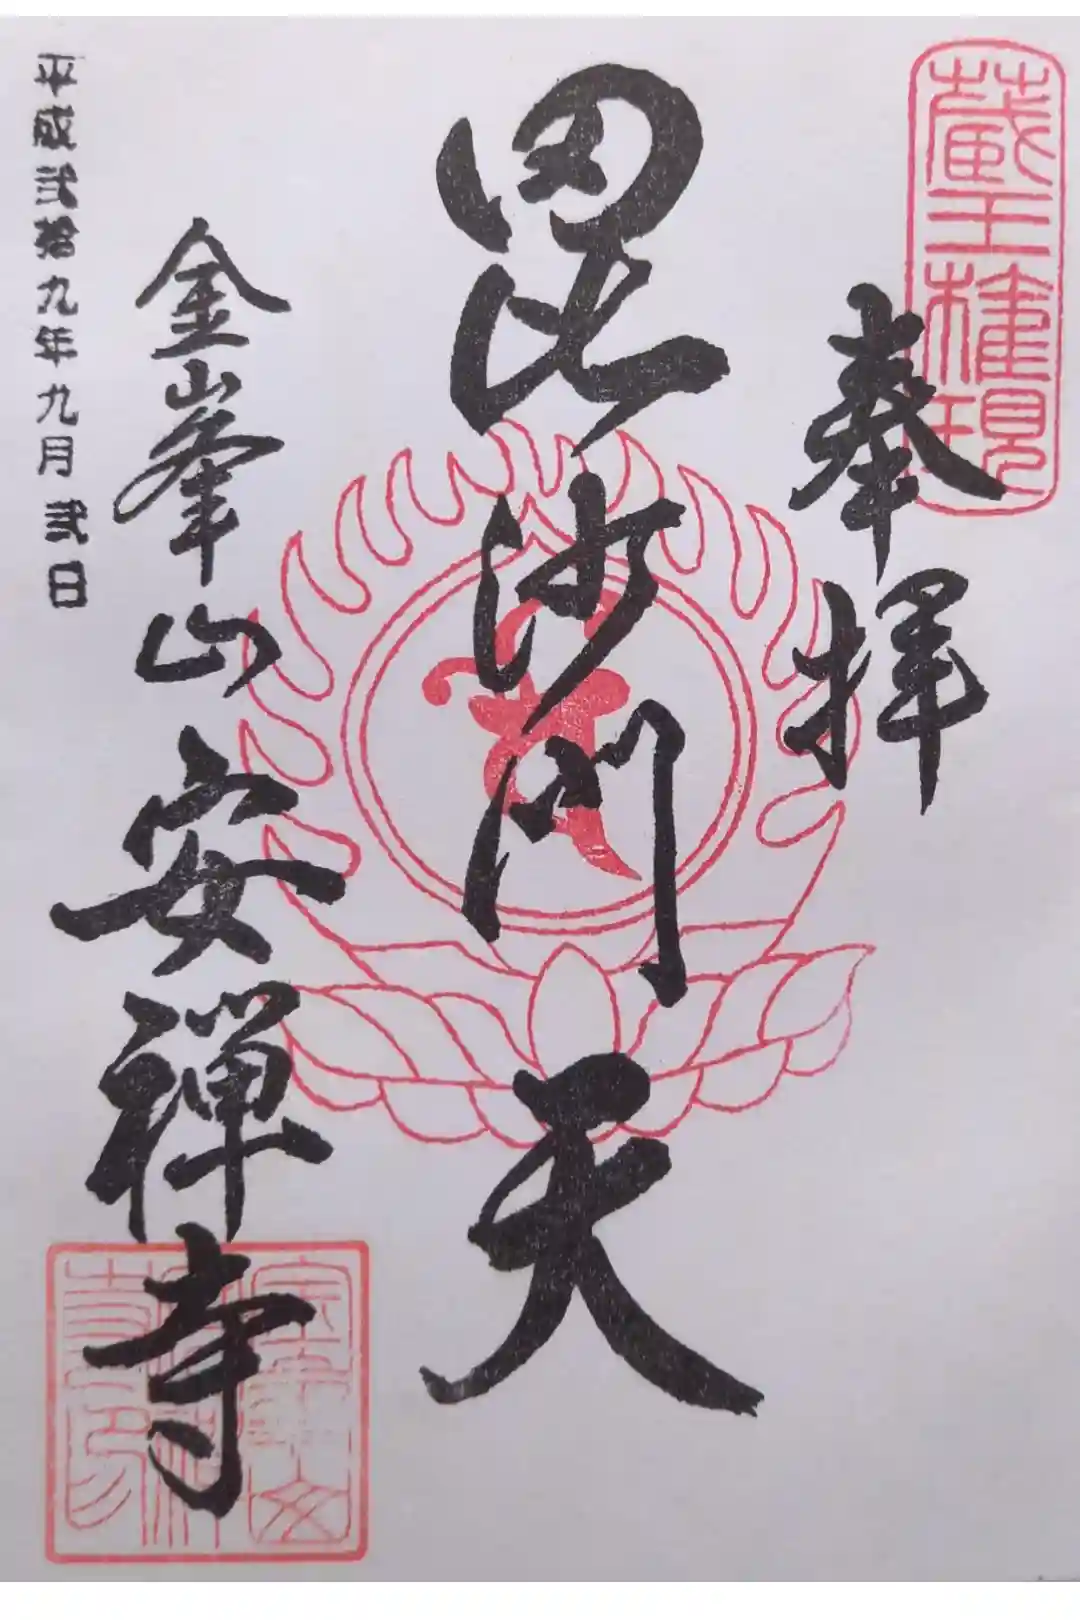 蔵王権現
奉拝
毘沙門天
金峯山安禅寺
平成弐拾九年九月弐日